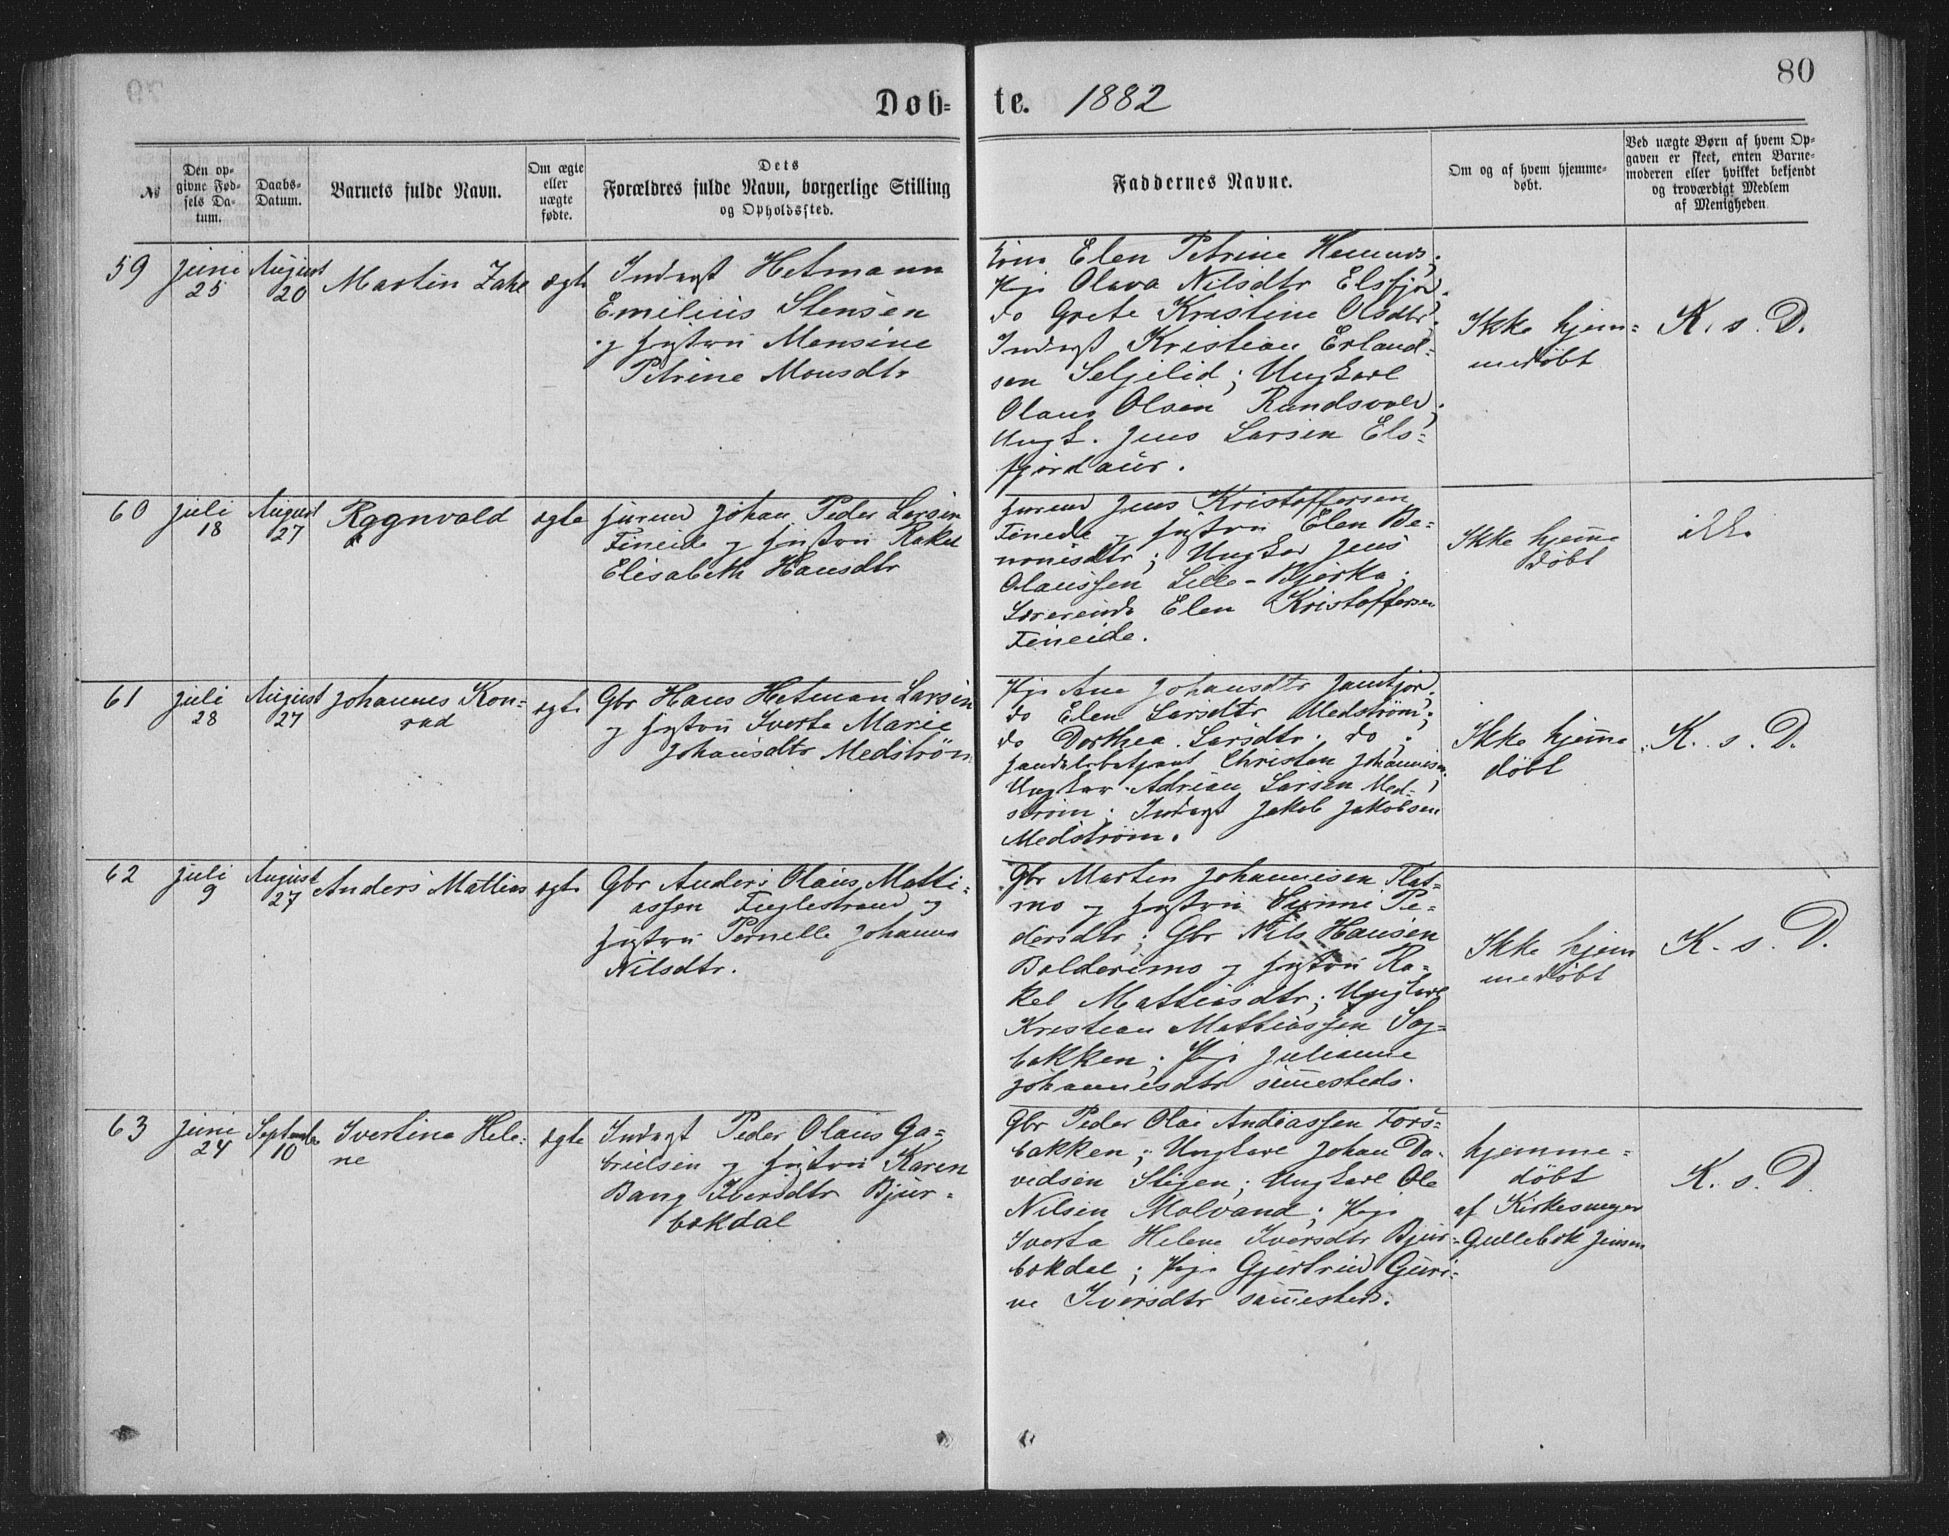 80
Døb=
te. 1882
№
Den op-
givne Fød-
sels Da-
tum.
Daabs-
Datum.
Barnets fulde Navn.
Om ægte
eller
uægte
fødte.
Dets
Forældres fulde Navn, borgerlige Stilling
og Opholdssted.
Faddernes Navne.
Om og af hvem hjemme-
døbt.
Ved uægte Børn af hvem Op-
gaven er skeet, enten Barne-
moderen eller hvilket bekjendt
og troværdigt Medlem
af Menigheden
59
Juni
25
August
20
Martin Zakl
ægte
Inderst Hetmann
Emilius Stensen
og hustru Monsine
Petrine Monsdtr
Elen Petrine Hemnes;
Pige Olava Nilsdtr Elsfjor.
do Grete Kristine Olsdtr.
Inderst Kristian Erland=
sen Seljelid; Ungkarl
Olaus Olsen Randsvold;
Ungk. Jens Larsen Els=
fjordaur.
Ikke hjem=
medøbt
K. s. D.
60
Juli
18
August
27
Ragnvald
ægte
Johan Peder Larsen
Fineide og hustru Rakel
Elisabeth Hansdtr
Jens Kristoffersen
Fineide og hustru Elen Be-
nonisdtr; Ungkar Jens
Olaussen Lille-Bjerka;
Lærerinde Elen Kristoffersen
Fineide.
Ikke hjeme
døbt
ikke
61
Juli
28
August
27
Johannes Kon=
rad
ægte
Gbr Hans Hetman Larsen
og hustru Iverta Marie
Johansdtr Medstrøm
Pige Ane Johansdtr Jamtjor.
do Elen Larsdtr Medstrøm;
do Dorthea Larsdtr. do;
Handelsbetjent Christen Johannesen.
Ungkar Adrian Larsen Med=
strøm; Inderst Jakob Jakobsen
Medstrøm.
Ikke hjeme
døbt
K. s. D.
62
Juli
9
August
27
Anders Mattias
ægte
Gbr Anders Olaus Matti=
assen Fuglestrand og
hustru Pernelle Johanna
Nilsdtr.
Gbr Martin Johannesen Flat=
mo og hustru Pe=
dersdtr; Gbr Nils Hansen
Bolderimo og hustru Ra=
kel Mattiasdtr; Ungkarl
Kristian Mattiassen Sag=
bakken; Pige Julianne
Johannesdtr sammesteds.
Ikke hjem
medøbt
K. s. D.
63
Juni
24
September
10
Ivertine Hele=
ne
ægte
Inderst Peder Olaus Ga=
brielsen og hustru Karen
Bang Iversdtr Bjur=
bækdal
Gbr Peder Olai Andreassen Fors=
bakken; Ungkarl Johan Da=
vidsen Stigen; Ungkarl Ole
Nilsen Molvand; Pige
Iverta Helene Iversdtr Bjur=
bækdal; Pige Gjertrud Guri=
ne Iversdtr sammesteds.
hjemme=
døbt
af Kirkesanger
Gullebæk Jensen
K. s. D.